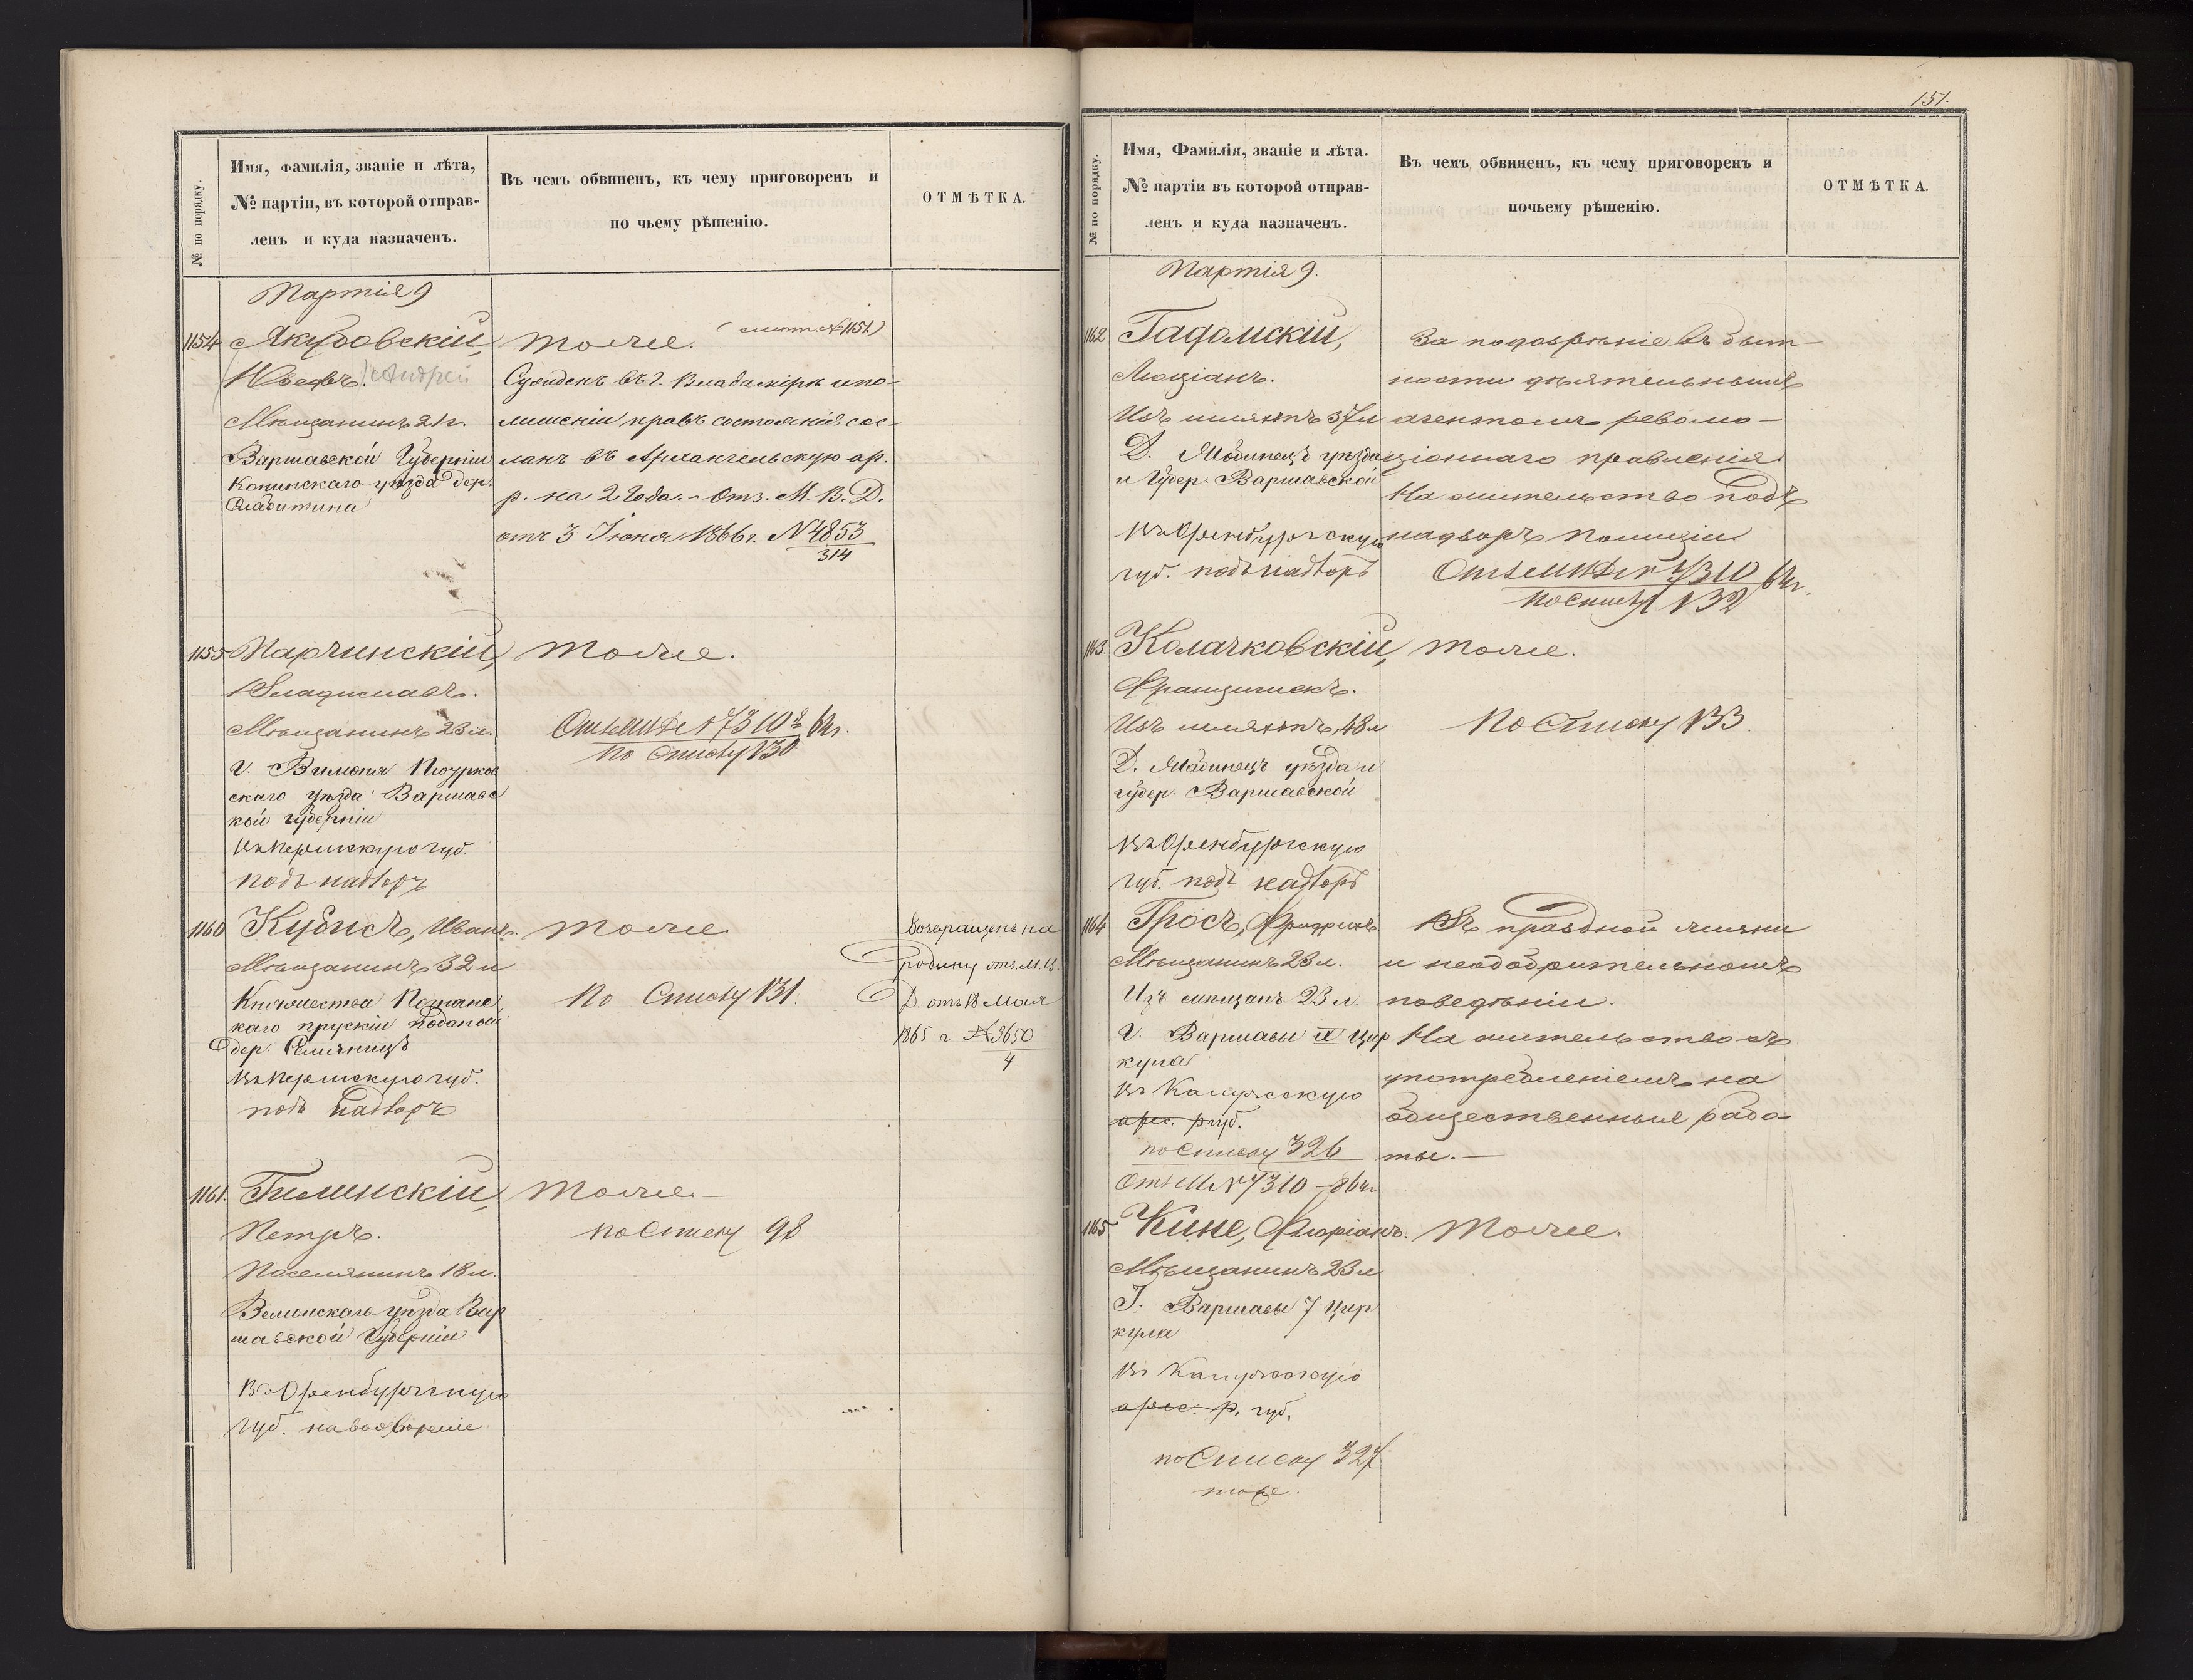 № по порядку.
Имя, фамилія, званіе и лѣта,
№ партіи, въ которой отправ-
ленъ и куда назначенъ.
Въ чемъ обвиненъ, къ чему приговоренъ и
по чьему рѣшенію.
ОТМѢТКА.
Партія 9
1154 Якубовскій,
Андрей
Мѣщанинъ 21 г.
Варшавской Губерніи
Конинскаго уѣзда дер.
Тоже. (смот. № 1151)
Сужденъ въ г. Владимірѣ и по
лишеніи правъ состоянія сос-
ланъ въ Архангельскую ар.
р. на 2 года. - Отз. М. В. Д.
отъ 3 Іюня 1866 г. № 4853
314
1155 Парчинскій,
Владиславъ.
Мѣщанинъ 23 л.
скаго уѣзда Варшавс
кой губерніи
Въ Пермскую губ.
подъ надзоръ
Тоже.
№ 7310
по Списку 130
1160 Кубисъ, Иванъ.
Мѣщанинъ 32 л
Княжества Познанс
каго прускій поданый
дер.
Въ Пермскую губ.
подъ надзоръ
Тоже
По Списку 131.
Возвращенъ на
родину отз. М. В.
Д. отъ 18 Мая
1865 г № 2650
4
1161.
Петръ.
Поселянинъ 18 л.
уѣзда Вар
шавской Губерніи
Въ Оренбургскую
губ. на водвореніе
Тоже. -
по Списку 98
151.
№ по порядку.
Имя, Фамилія, званіе и лѣта.
№ партіи въ которой отправ-
ленъ и куда назначенъ.
Въ чемъ обвиненъ, къ чему приговоренъ и
почьему рѣшенію.
ОТМѢТКА.
Партія 9.
1162 Гадомскій,
Люціанъ.
Изъ шляхтъ 37 л
Д. уѣзда
и Губер. Варшавской
Въ Оренбургскую
губ. подъ надзоръ
За подозрѣніе въ быт-
ности дѣятельнымъ
агентомъ револю-
ціоннаго правленія.
На жительство подъ
надзоръ полиціи
7310 64 г.
по Списку 132
1163. Колачковскій,
Францишекъ.
Изъ шляхтъ, 48 л
Д. уѣзда и
губер. Варшавской
Въ Оренбургскую
губ. подъ надзоръ
Тоже.
По Списку 133.
1164 Гросъ, Фридрихъ
Мѣщанинъ 23 л.
Изъ мѣщанъ 23 л.
г. Варшавы цир
кула
Въ Калужскую
арес. р. губ.
по Списку 326
№ 7310 - 64 г
Въ праздной жизни
и неодобрительномъ
поведѣніи.
На жительство съ
употребленіемъ на
общественныя рабо-
ты. -
1165 Кине, Флоріанъ.
Мѣщанинъ 23 л
Г. Варшавы 7 цир
кула
Въ Калужскую
арес. р. губ.
по Списку 327
тоже.
Тоже.